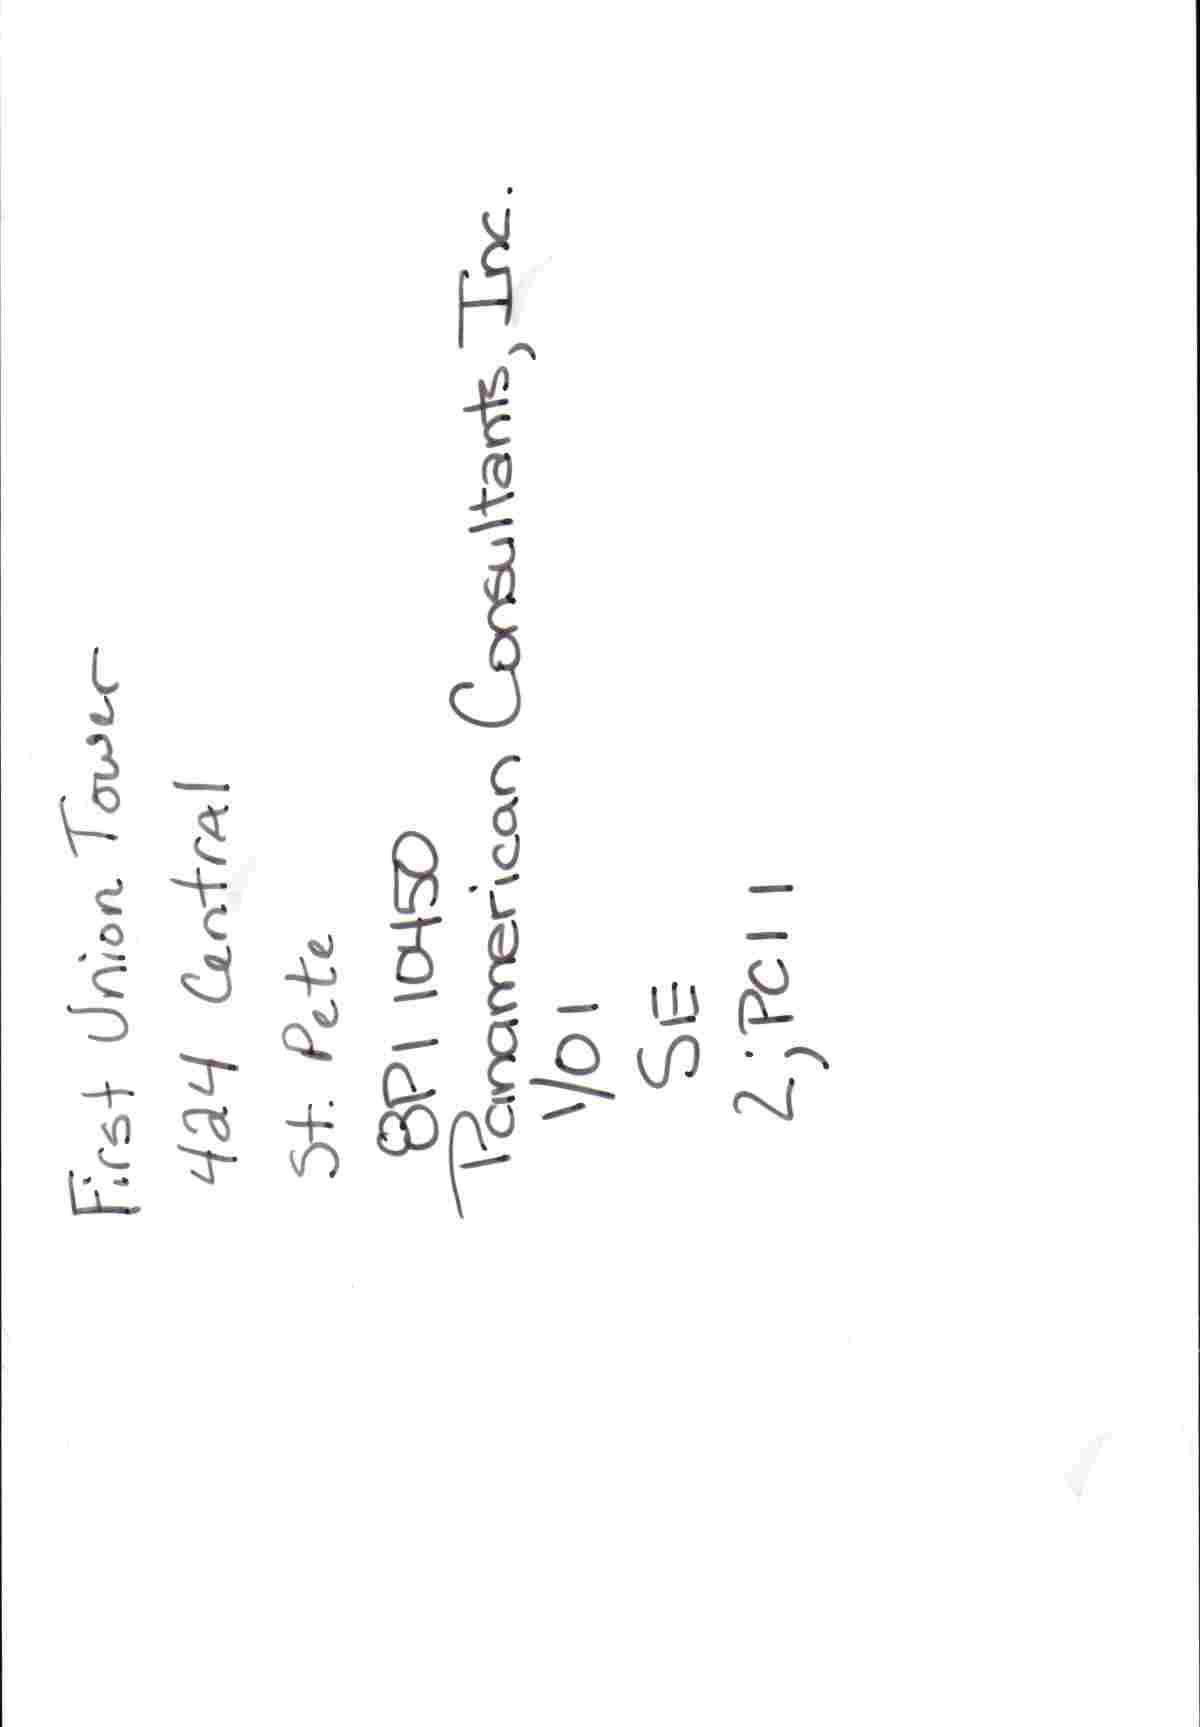 First Union Tower
424 Central
St. Pete
8PI 10450
Panamerican Consultants, Inc.
1/01
SE
2;PC11